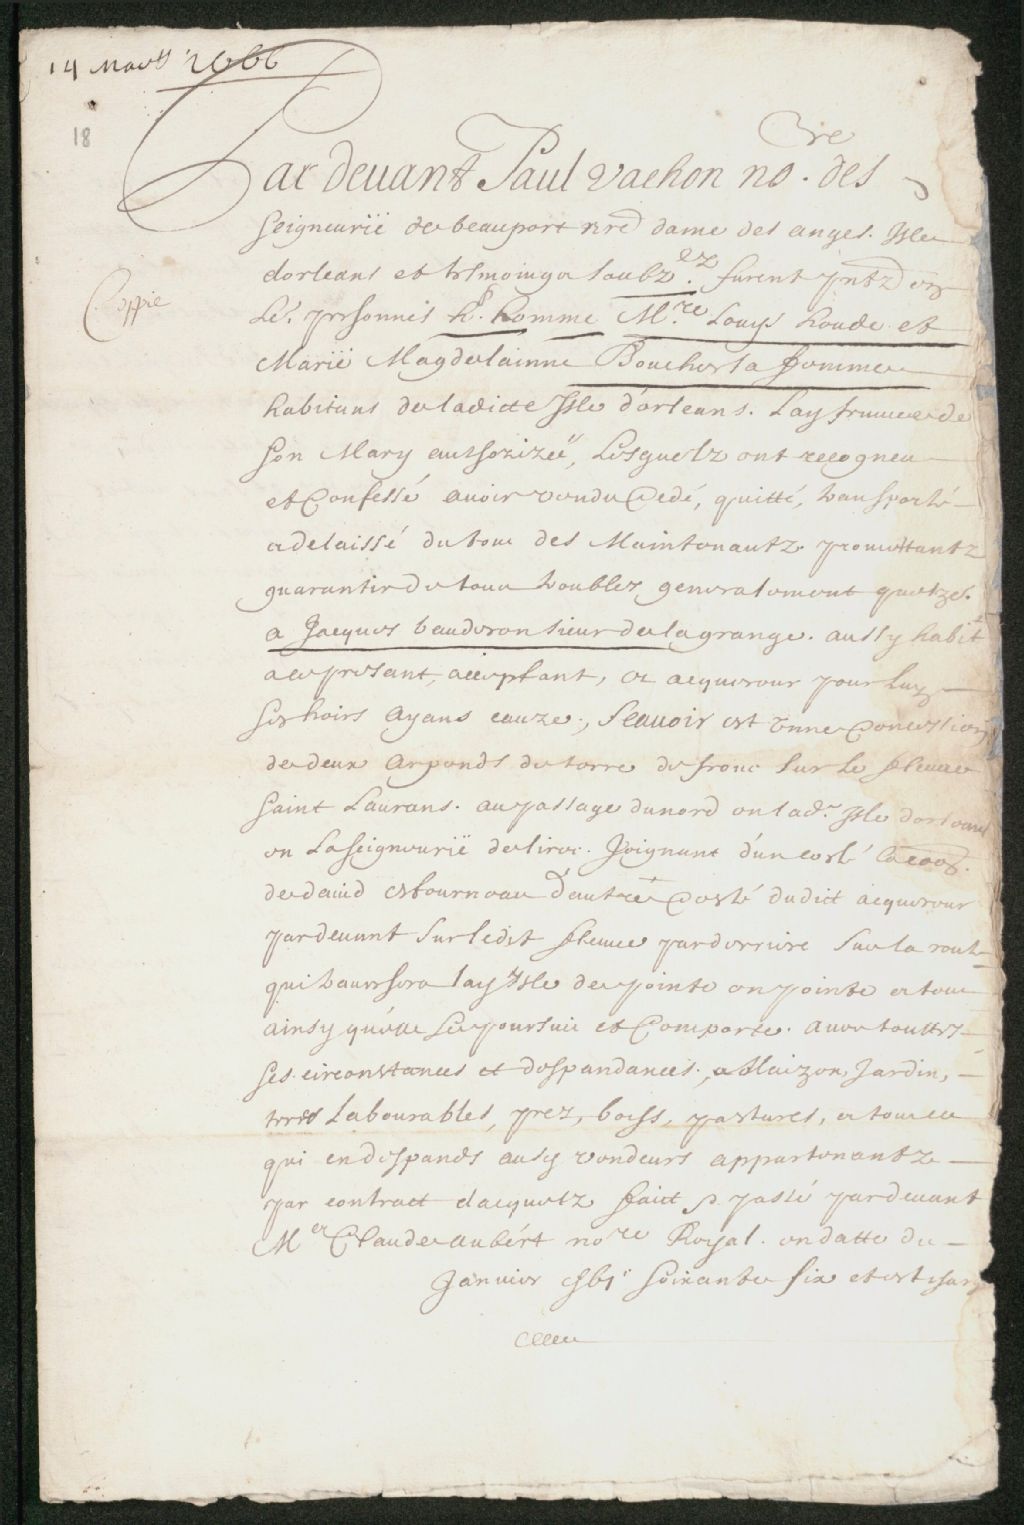 14 Mars 1666
18
Par devant Paul vachon no.re des
Seigneurië de beauport nre dame des anges. Isle
dorleans et tesmoings soubz.ez furent pntz en
Coppie
Les personnes h.e homme M.re Louys houde et
Marië Magdelainne Boucher sa femme
habitans de ladicte Isle d'orleans. Lad. femme de
son Mary authorizëe, Lesquelz ont recogneu
et Confessé avoir vendu Cedé, quitté, transporté
et delaissé du tout des Maintenant promettantz
guarantir de tous troubles generalement quelzc.
a Jacques beauderon sieur de lagrange. aussy habit
a ce present, acceptant, et acquereur pour luy
ses hoirs ayans cauze, sçauoir est vnne Concession
de deux arpends de terre de front sur le fleuue
saint Laurans. au passage du nord en lad. Isle dorleans
en La seigneurië de lirec. Joignant d'un costé
de dauid esbourneau d'autre Costé dudict acquereur
par deuant sur ledit fleuue par derriere sur la route
qui trauersera lad Isle de pointe en pointe et tout
ainsy qu'elle se poursuit et Comporte. auec touttes
ses circonstances et despandances, Maizon, Jardin,
terres Labourables, prez, boiss, pastures, et tout ce
qui en despends ausd vendeurs appartenantz
par contract d'acquetz faict passé par deuant
M.er Claude aubért no.re Royal. en datte du
Januier soixante six et